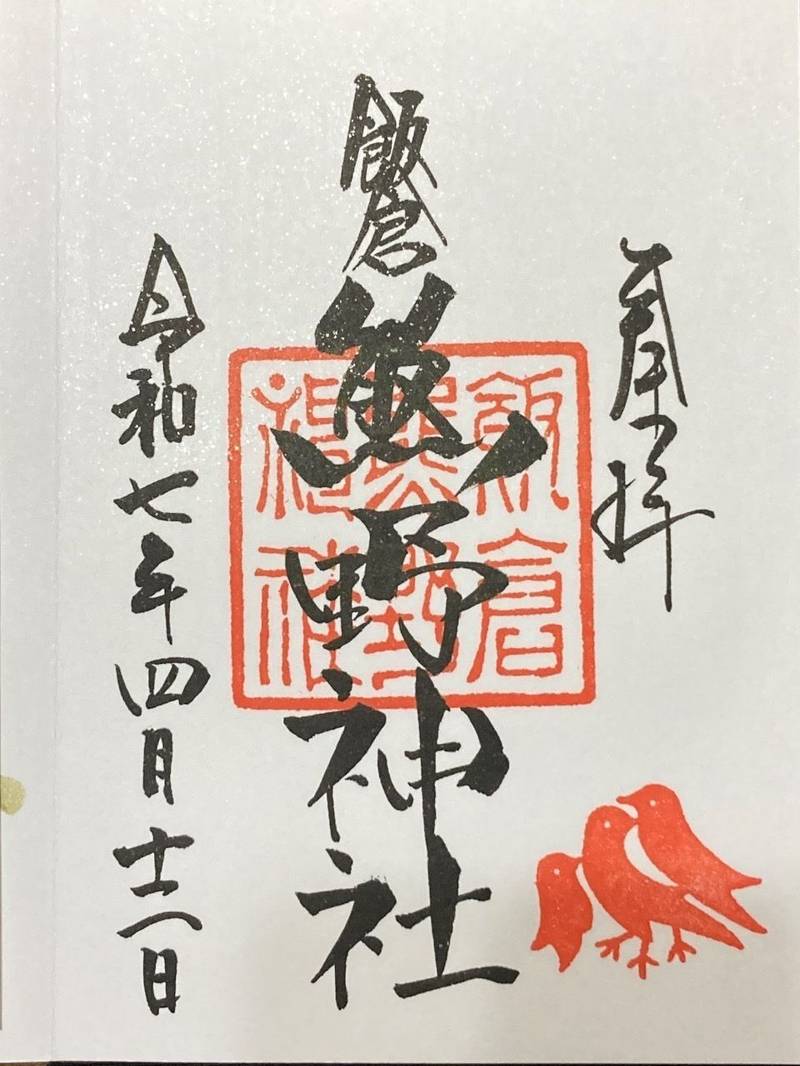 奉拝
飯倉
熊野神社
令和七年四月十二日
飯倉
熊野
神社